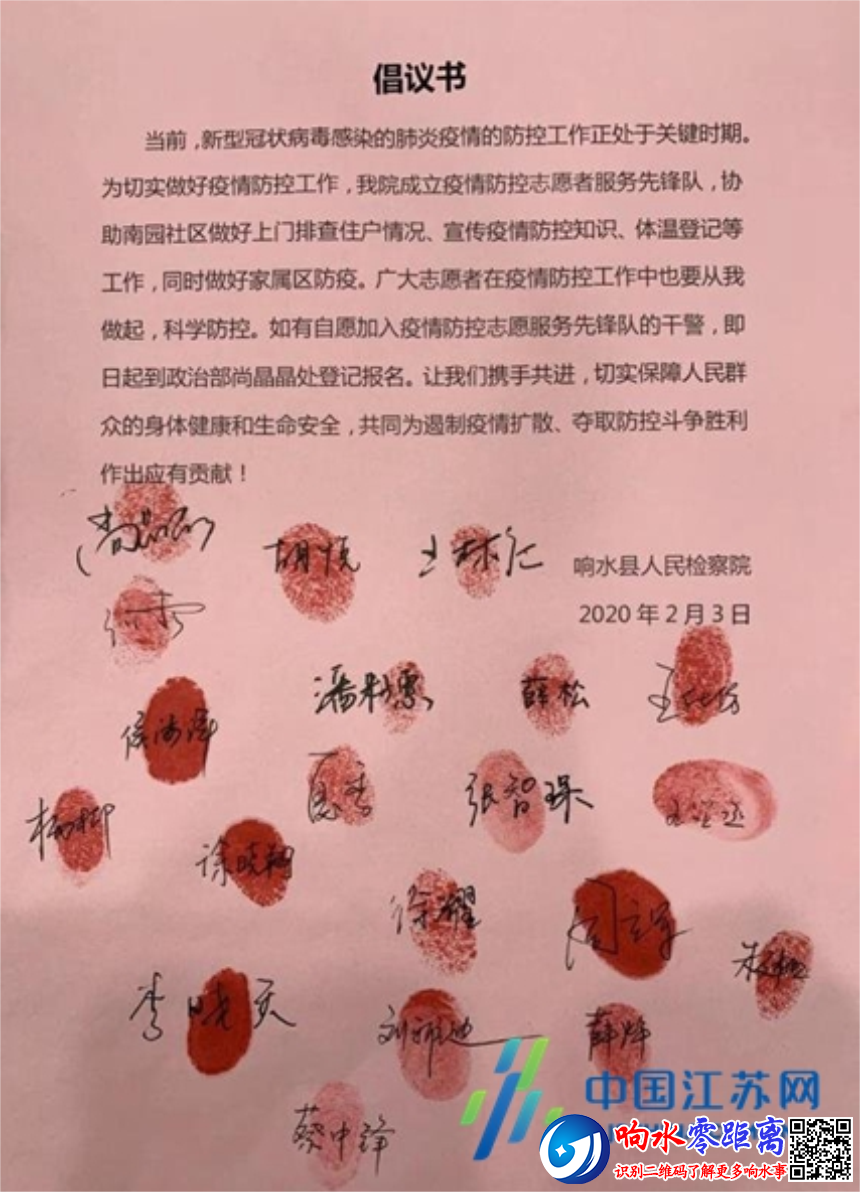 倡议书
当前，新型冠状病毒感染的肺炎疫情的防控工作正处于关键时期。
为切实做好疫情防控工作，我院成立疫情防控志愿者服务先锋队，协
助南园社区做好上门排查住户情况、宣传疫情防控知识、体温登记等
工作，同时做好家属区防疫。广大志愿者在疫情防控工作中也要从我
做起，科学防控。如有自愿加入疫情防控志愿服务先锋队的干警，即
日起到政治部尚晶晶处登记报名。让我们携手共进，切实保障人民群
众的身体健康和生命安全，共同为遏制疫情扩散、夺取防控斗争胜利
作出应有贡献！
尚晶晶 胡悦 王林仁
响水县人民检察院
2020 年 2 月 3 日
潘利惠 薛松
侯海峰
夏青 张智璟
杨柳
徐晓翔
徐耀
李晓天 薛炜
蔡中锋
中国江苏网
响水零距离
识别二维码了解更多响水事